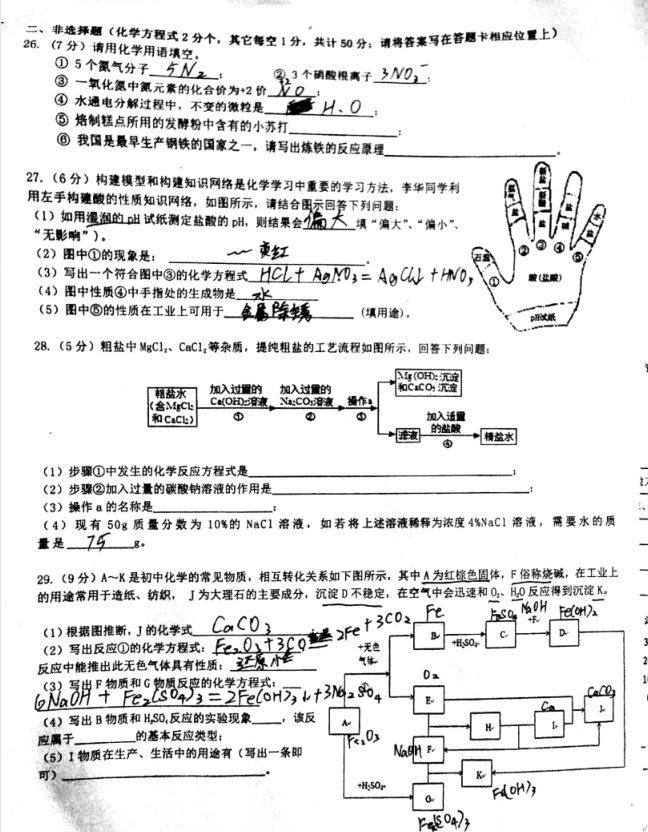 二、非选择题（化学方程式2分个，其它每空1分，共计50分；请将答案写在答题卡相应位置上）
26.（7分）请用化学用语填空。
① 5个氮气分子 5N₂ ； ② 3个硝酸根离子 3NO₃⁻ ；
③ 一氧化氮中氮元素的化合价为+2价 +2 NO ；
④ 水通电分解过程中，不变的微粒是 H、O ；
⑤ 焙制糕点所用的发酵粉中含有的小苏打 ；
⑥ 我国是最早生产钢铁的国家之一，请写出炼铁的反应原理 。
27.（6分）构建模型和构建知识网络是化学学习中重要的学习方法，李华同学利
用左手构建酸的性质知识网络，如图所示，请结合图示回答下列问题：
（1）如用湿润的pH试纸测定盐酸的pH，则结果会 偏大 填“偏大”、“偏小”、
“无影响”）。
（2）图中①的现象是： 变红 。
（3）写出一个符合图中③的化学方程式 HCl + AgNO₃ = AgCl↓ + HNO₃
（4）图中性质④中手指处的生成物是 水
（5）图中⑤的性质在工业上可用于 金属除锈 （填用途）。
石蕊 盐 碱 水
① ② ③ ④ ⑤
酸（盐酸）
pH试纸
28.（5分）粗盐中MgCl₂、CaCl₂等杂质，提纯粗盐的工艺流程如图所示，回答下列问题：
粗盐水（含MgCl₂和CaCl₂）
加入过量的Ca(OH)₂溶液 ①
加入过量的Na₂CO₃溶液 ②
操作a ③
Mg(OH)₂沉淀和CaCO₃沉淀
滤液
加入适量的盐酸 ④
精盐水
（1）步骤①中发生的化学反应方程式是 ；
（2）步骤②加入过量的碳酸钠溶液的作用是 ；
（3）操作a的名称是 ；
（4）现有50g质量分数为10%的NaCl溶液，如若将上述溶液稀释为浓度4%NaCl溶液，需要水的质
量是 75 g。
29.（9分）A～K是初中化学的常见物质，相互转化关系如下图所示，其中A为红棕色固体，F俗称烧碱，在工业上
的用途常用于造纸、纺织， J为大理石的主要成分，沉淀D不稳定，在空气中会迅速和O₂、H₂O反应得到沉淀K。
（1）根据图推断，J的化学式 CaCO₃
（2）写出反应①的化学方程式： Fe₂O₃+3CO 高温 2Fe+3CO₂
反应中能推出此无色气体具有性质： 还原性
（3）写出F物质和G物质反应的化学方程式：
6NaOH + Fe₂(SO₄)₃ = 2Fe(OH)₃↓+3Na₂SO₄
（4）写出B物质和H₂SO₄反应的实验现象 ，该反
应属于 的基本反应类型；
（5）I物质在生产、生活中的用途有（写出一条即
可） 。
Fe FeSO₄ NaOH Fe(OH)₂
+无色气体 B +H₂SO₄ C +F D
E
H I J
Ca CaCO₃
A Fe₂O₃
NaOH F
K Fe(OH)₃
+H₂SO₄ G
Fe₂(SO₄)₃